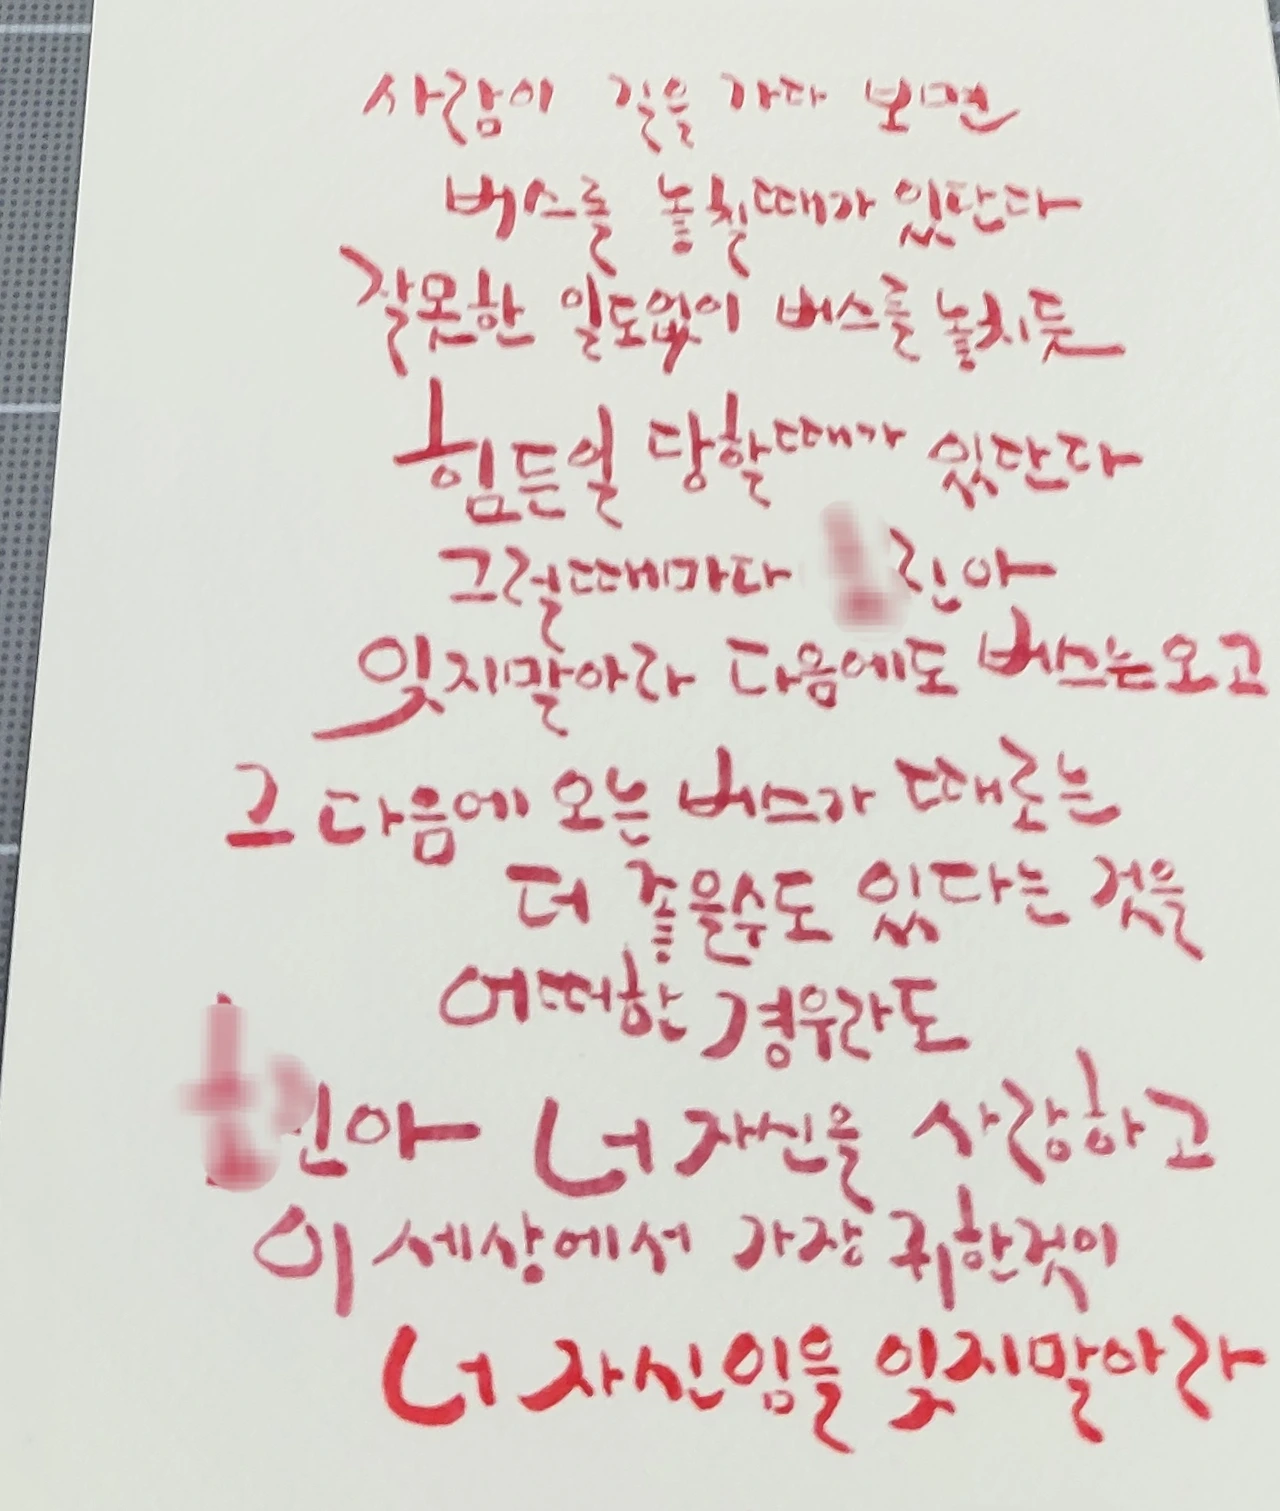 사람이 길을 가다 보면
버스를 놓칠때가 있단다
잘못한 일도없이 버스를 놓치듯
힘든일 당할때가 있단다
그럴때마다 린아
잊지말아라 다음에도 버스는오고
그 다음에 오는 버스가 때로는
더 좋을수도 있다는 것을
어떠한 경우라도
너 자신을 사랑하고
이 세상에서 가장 귀한것이
너 자신임을 잊지말아라